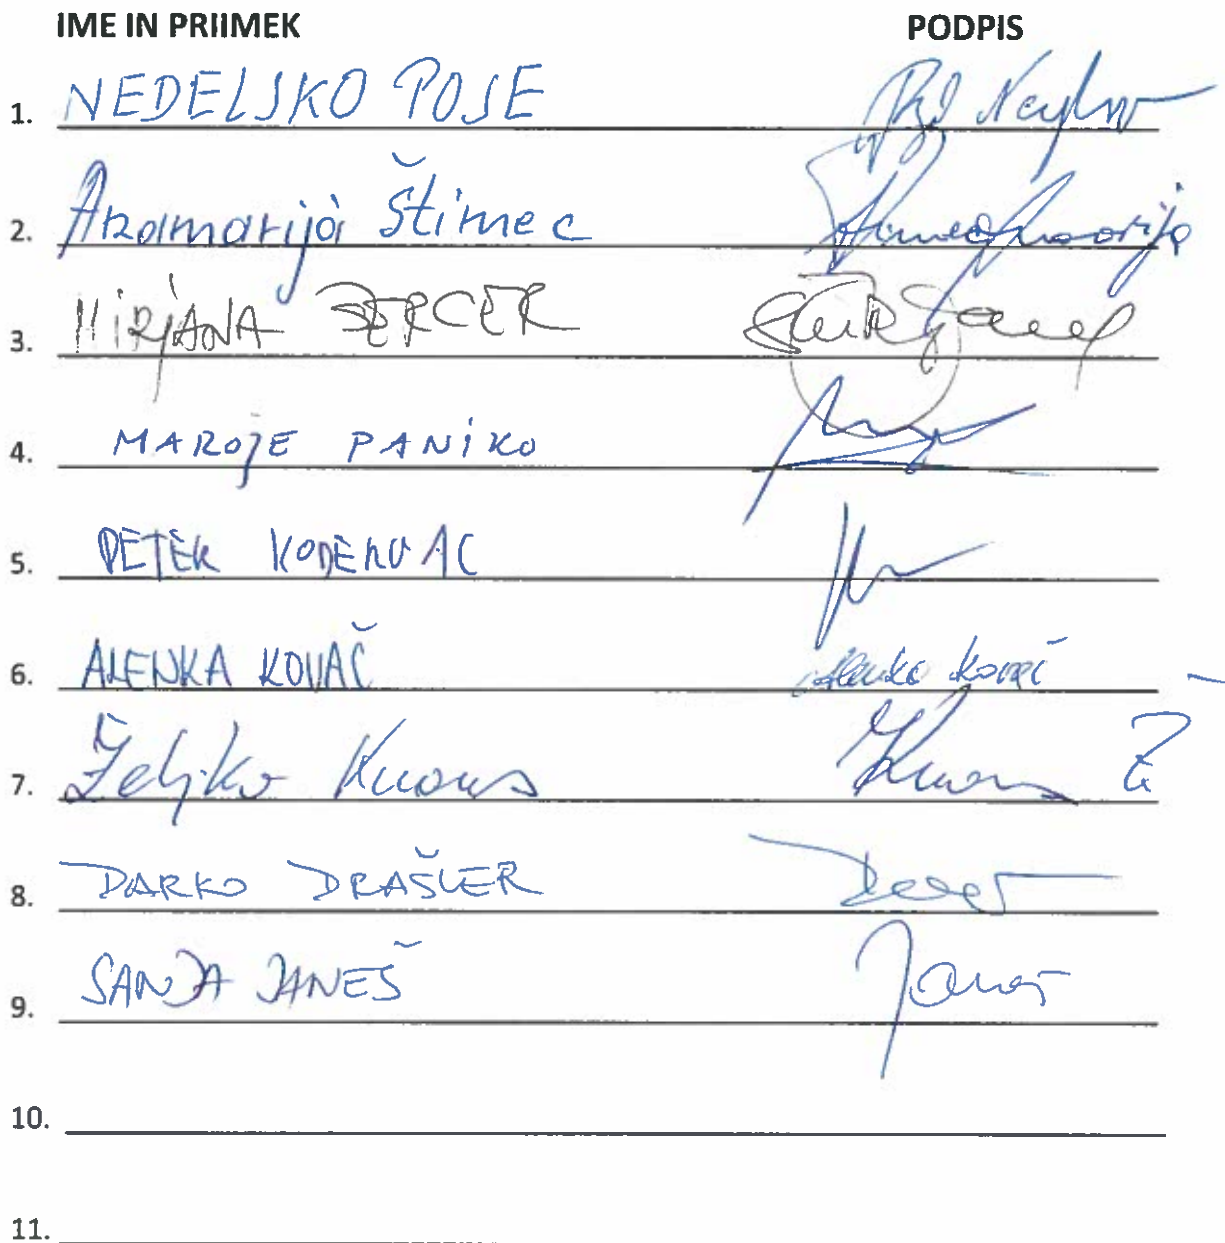 IME IN PRIIMEK PODPIS
1. NEDELJKO POJE
2. Anamarija Štimec
3. MIRJANA BERCER
4. MAROJE PANIKO
5. PETER KODERVAC
6. ALENKA KOVAČ Alenka Kovač
7. Željko Knaus
8. DARKO DRAŠLER
9. SANJA JANEŠ Janeš
10.
11.